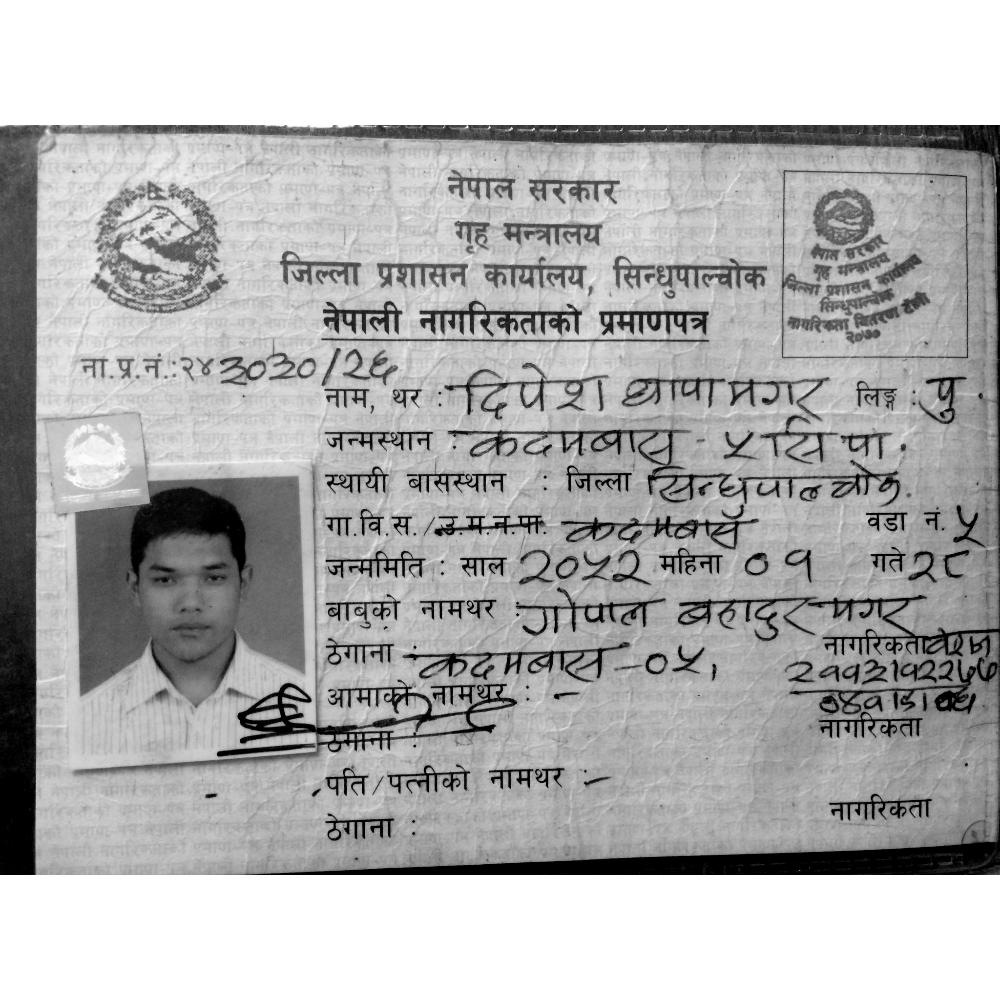 नेपाल सरकार
गृह मन्त्रालय
जिल्ला प्रशासन कार्यालय, सिन्धुपाल्चोक
नेपाली नागरिकताको प्रमाणपत्र
नेपाल सरकार
गृह मन्त्रालय
जिल्ला प्रशासन कार्यालय
सिन्धुपाल्चोक
नागरिकता वितरण टोली
२०७०
ना.प्र.नं.:२४३०३०/२६
नाम, थर : दिपेश थापा मगर लिङ्ग : पु.
जन्मस्थान : कदमबास - ५ सि पा.
स्थायी बासस्थान : जिल्ला सिन्धुपाल्चोक.
गा.वि.स./उ.म.न.पा. कदमबास वडा नं. ५
जन्ममिति : साल २०५२ महिना ०१ गते २८
बाबुको नामथर : गोपाल बहादुर मगर
ठेगाना : कदमबास - ०५, नागरिकता
आमाको नामथर : -
ठेगाना : नागरिकता
पति/पत्नीको नामथर : -
ठेगाना : नागरिकता